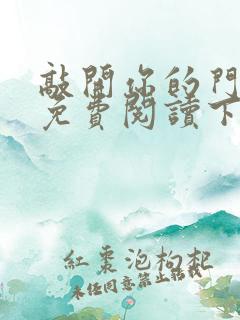 敲開你的門
免費閱讀下
紅棗泡枸杞
未經同意禁止轉載